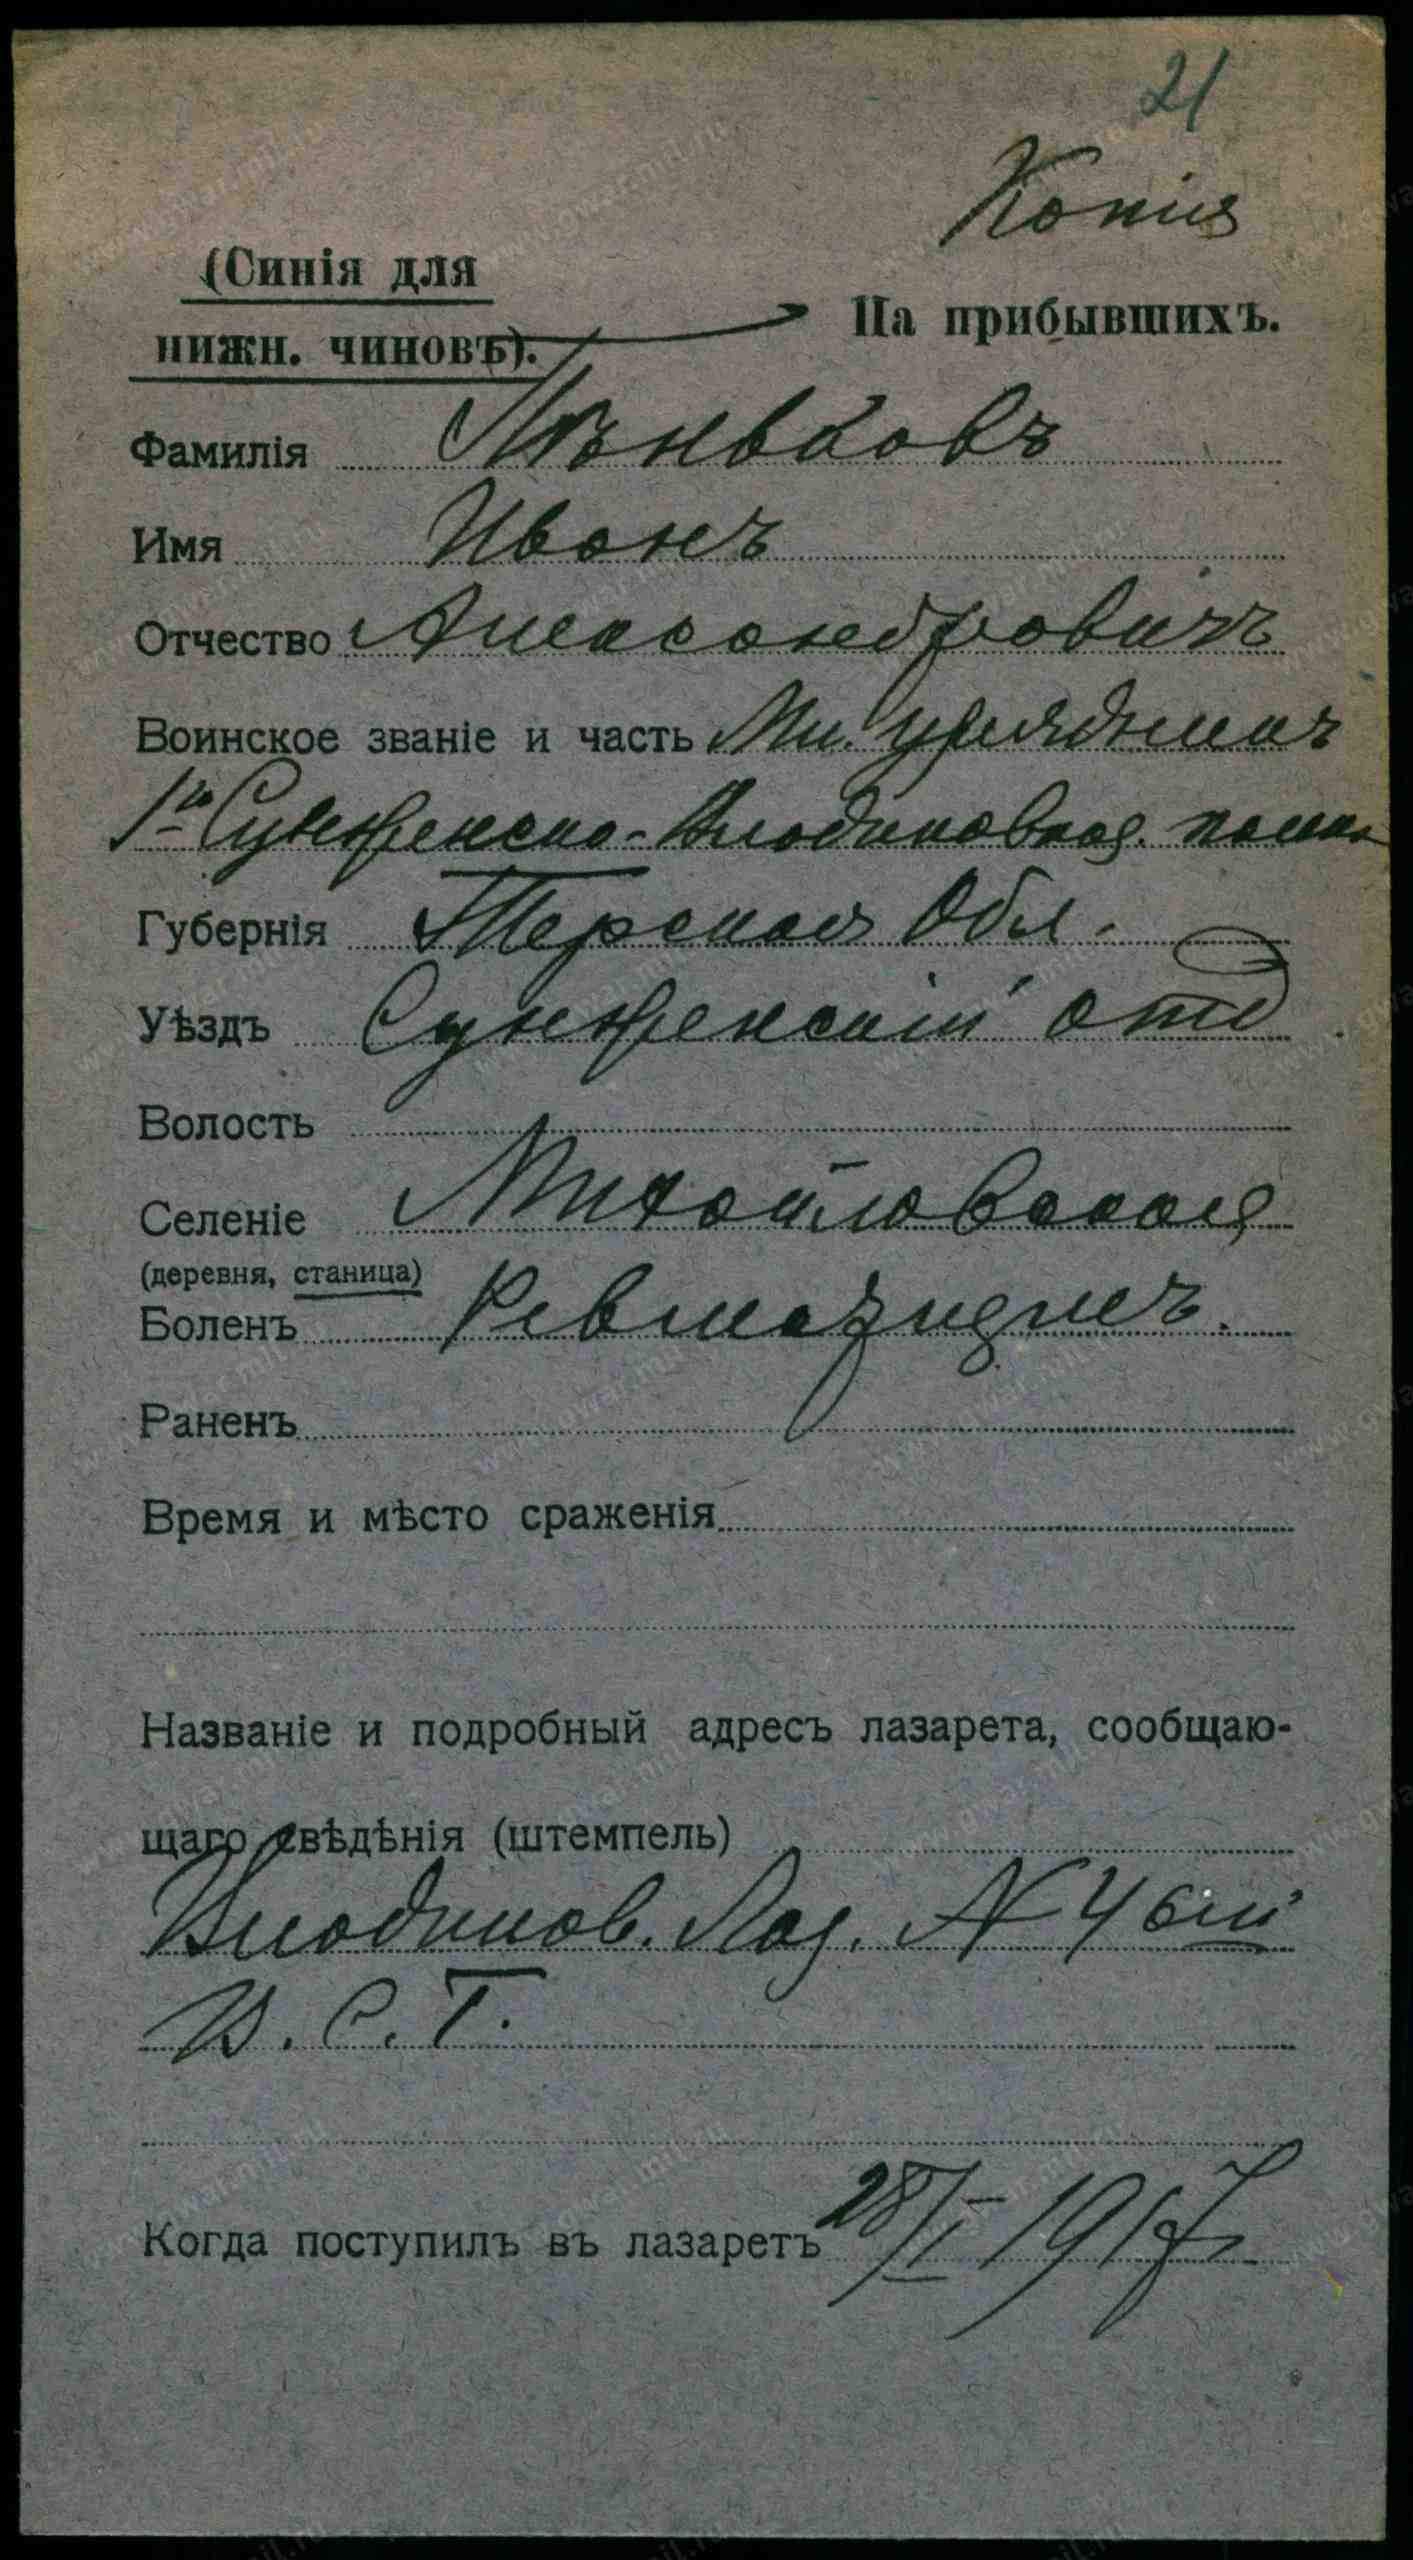 21
Копія
(Синія для
нижн. чиновъ).
На прибывшихъ.
Фамилія Пѣньковъ
Имя Иванъ
Отчество Александровичъ
Воинское званіе и часть Мл. урядникъ
1го Сунженско-Владикавказ. полка
Губернія Терская Обл.
Уѣздъ Сунженскій отд
Волость
Селеніе Михайловская
(деревня, станица)
Боленъ Ревматизмъ.
Раненъ
Время и мѣсто сраженія
Названіе и подробный адресъ лазарета, сообщаю-
щаго свѣдѣнія (штемпель)
Владиков. Лаз. №4 бій
В. С. Г.
Когда поступилъ въ лазаретъ 28/I 1917